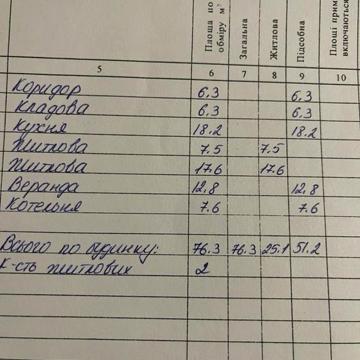 Площа по обміру м²
Загальна
Житлова
Підсобна
Площі прим
включаються
5 6 7 8 9 10
Коридор 6.3 6.3
Кладова 6.3 6.3
Кухня 18.2 18.2
Житлова 7.5 7.5
Житлова 17.6 17.6
Веранда 12.8 12.8
Котельня 7.6 7.6
Всього по будинку: 76.3 76.3 25.1 51.2
К-сть житлових 2